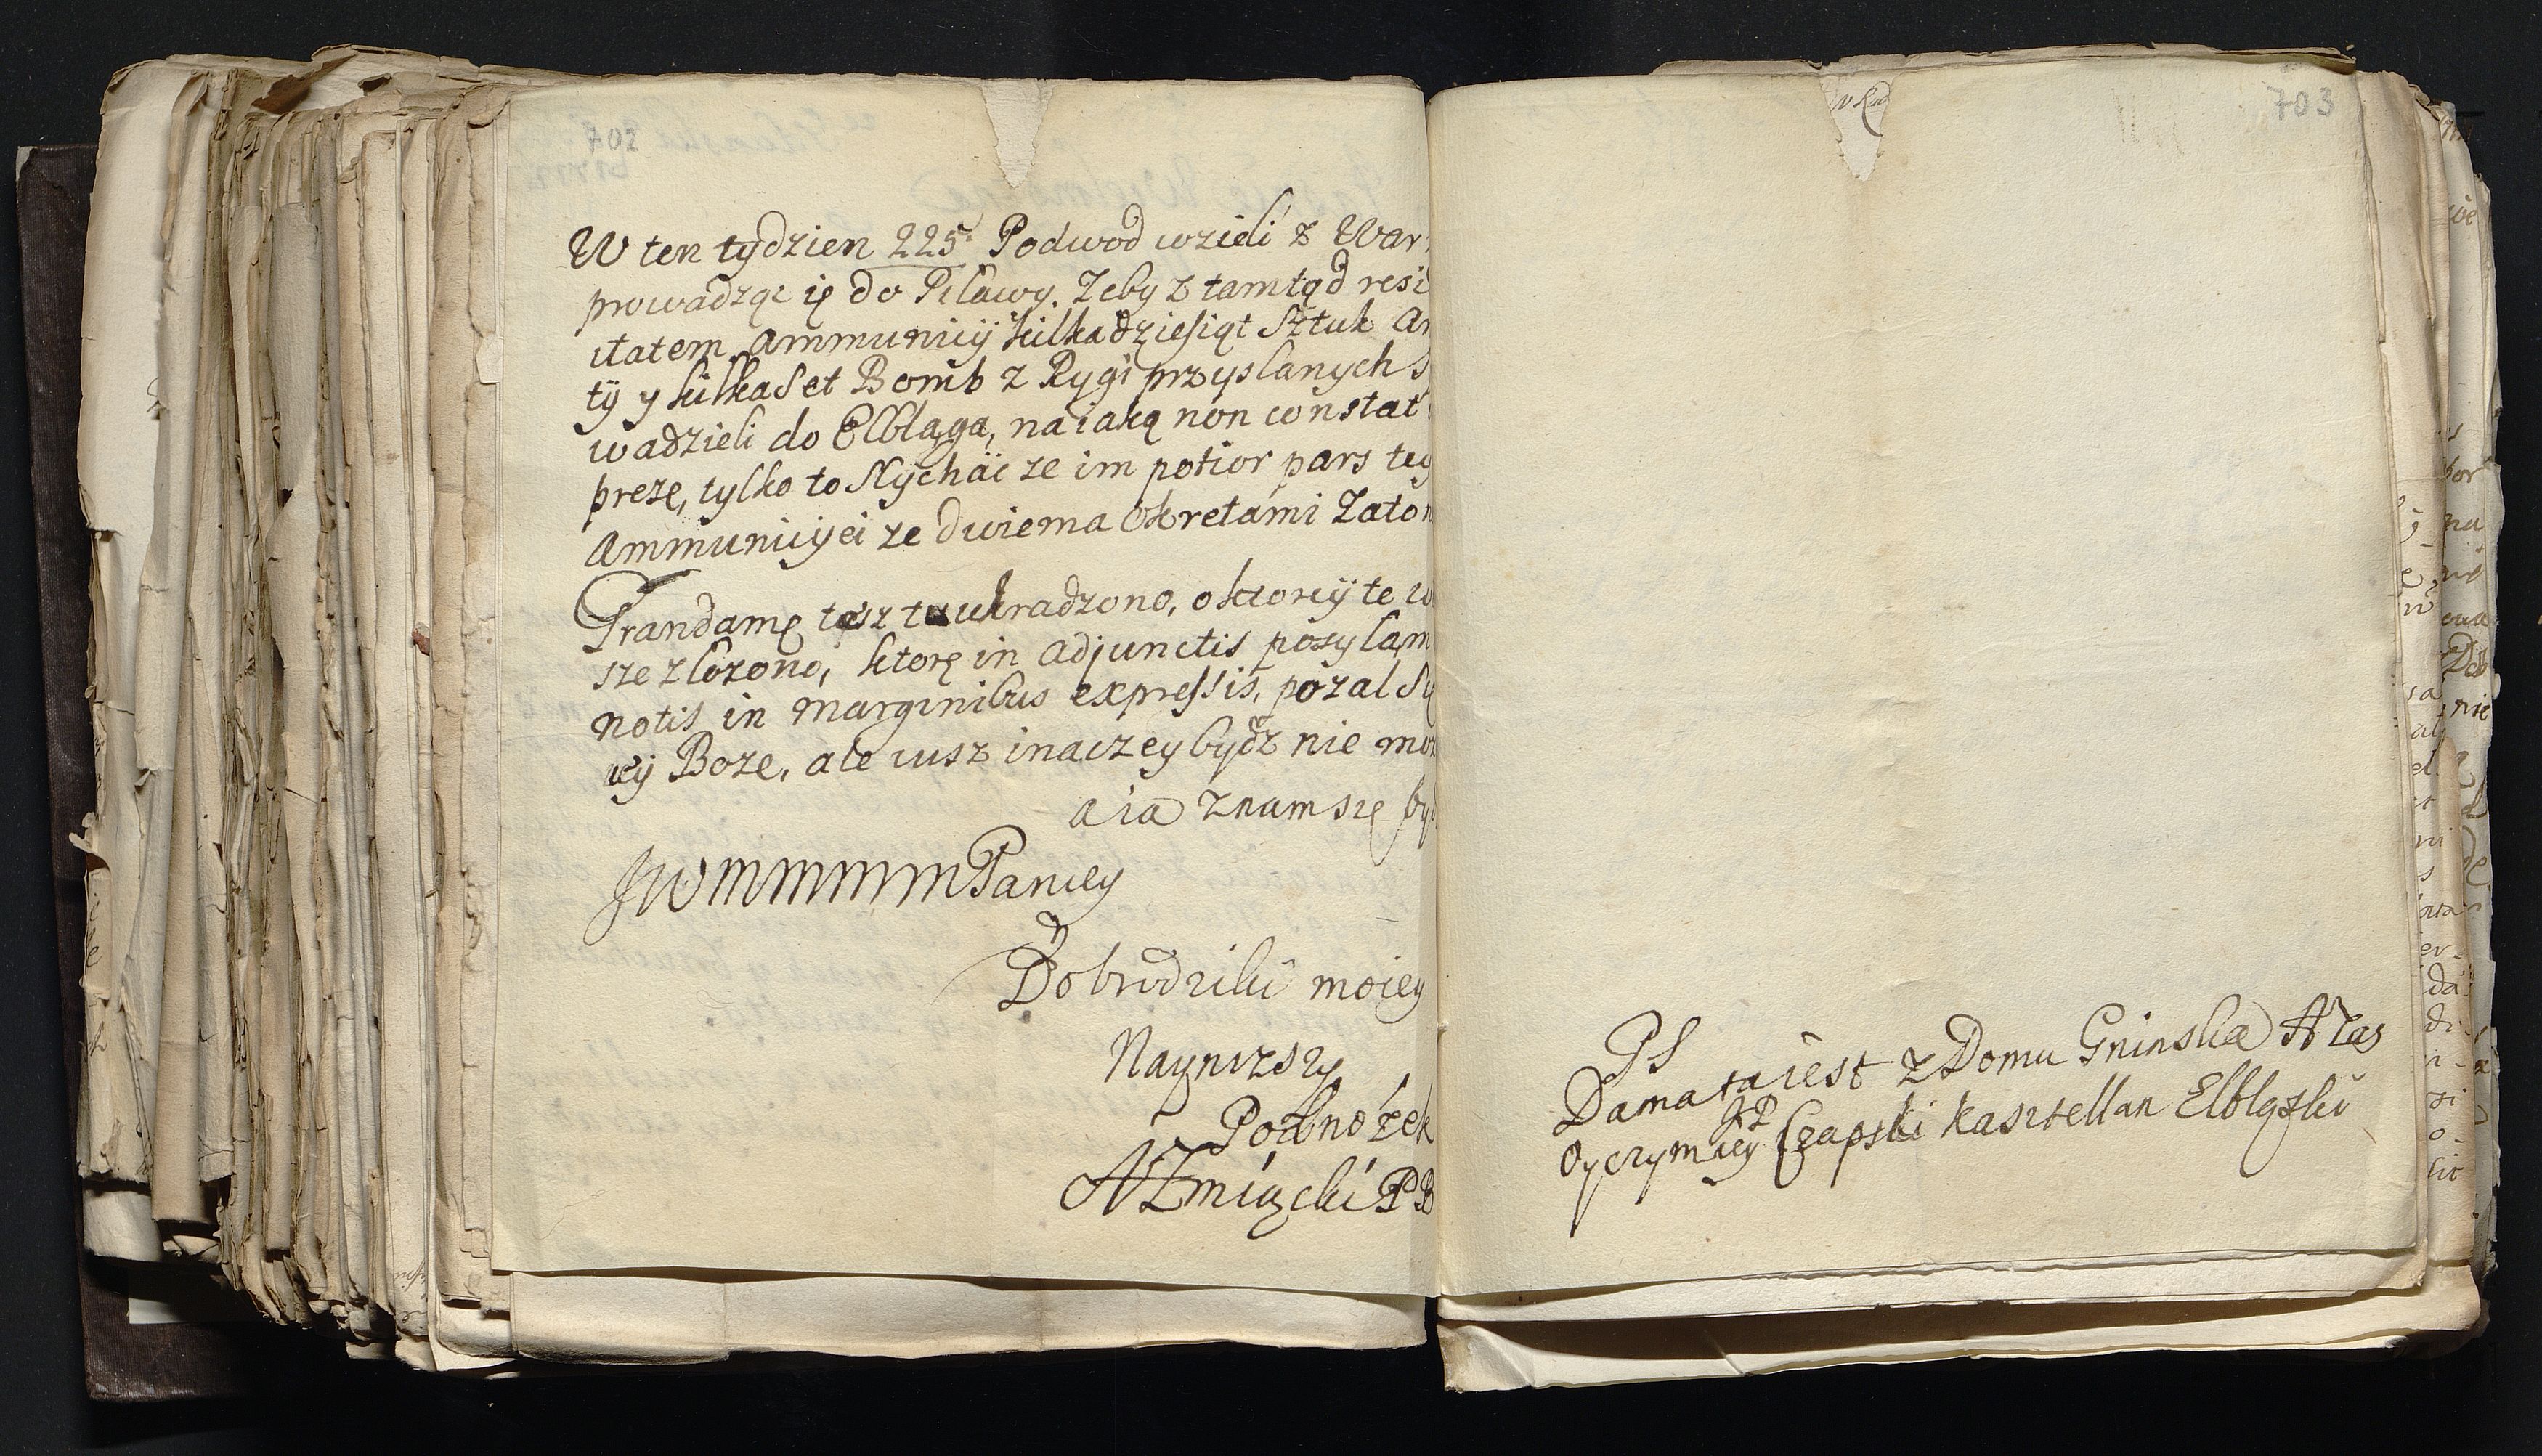 702
W ten tydzien 225 Podwod wzieli z War
prowadząc ię do Pilawy. Zeby z tamtąd resi
utatem ammunicÿ kilkadziesiąt Sztuk Ar
tÿ y kilkaset Bomb z Rygi przyslanych s
wadzieli do Elbląga, na iaką non constat
prezę, tylko to slÿchać ze im potior pars tey
Ammunicÿei ze dwiema Okretami Zaton
Grandamę tesz tu ukradzono, o ktorÿ te w
sze zlozono, ktorę in adjunctis posylam
notis in marginibus expressis, pozal Sę
Boze, ale iusz inaczey bydz nie moz
a ia znam się by
JWMMMMMPaniey
Dobrodziki moiey
Naynizszy
Podnożek
AZmiącki PB
703
PS
Dama ta iest z Domu Gninska A zas
JP
Oyczym iey Czapski kasztellan Elblązki